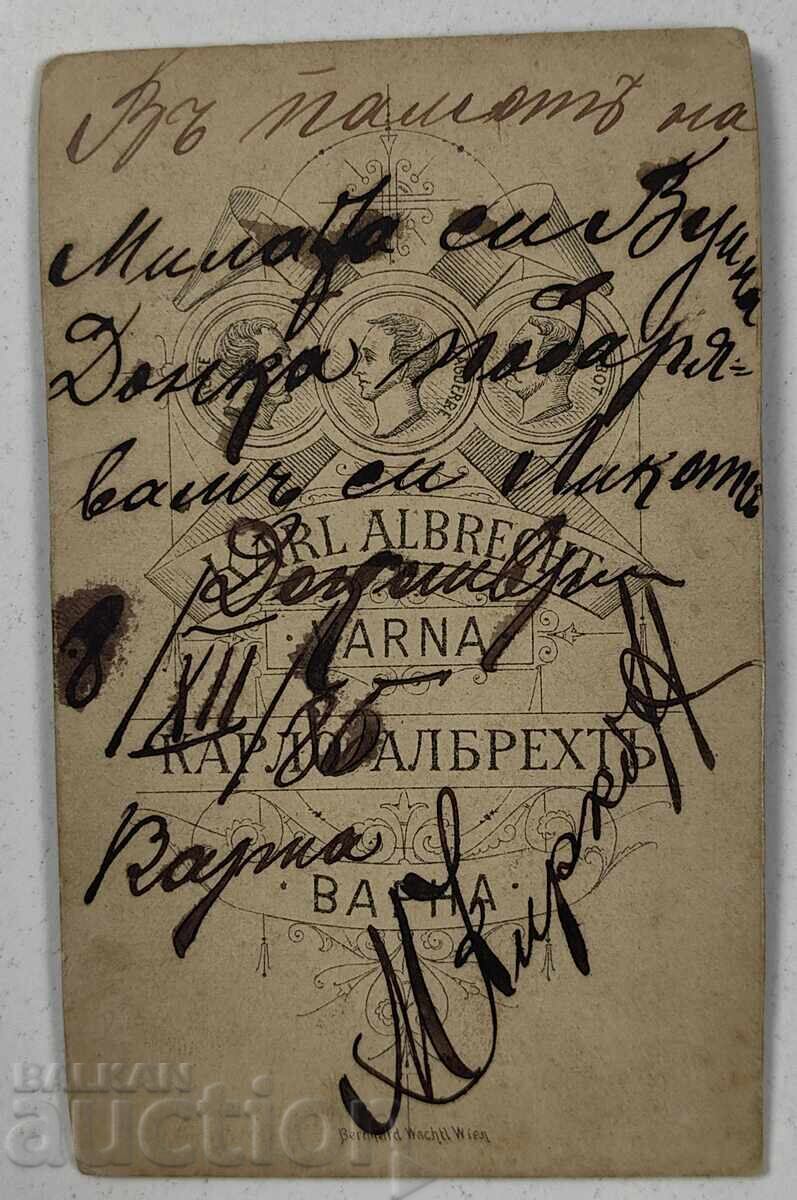 Въ паметь на
Милата си Вуйна
Донка подаря=
вамъ си Ликотъ
KARL ALBRECHT
Декемврия
8/XII/86
VARNA
КАРЛЪ АЛБРЕХТЪ
Варна
ВАРНА
М. Кирков
BALKAN
auction
Bernhard Wachtl Wien